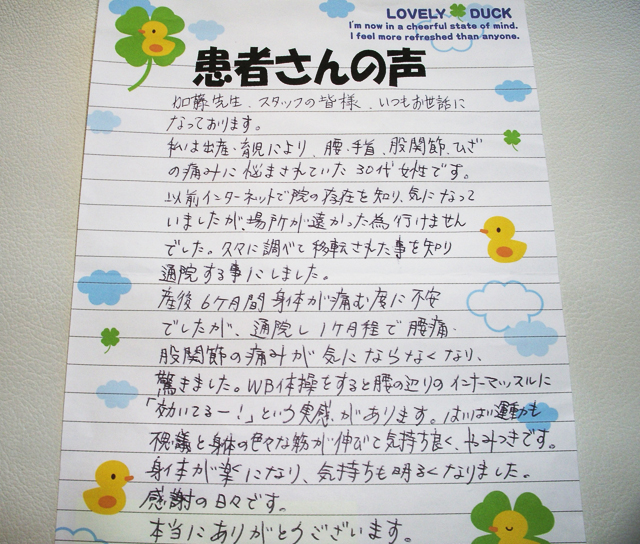 LOVELY DUCK
I'm now in a cheerful state of mind.
I feel more refreshed than anyone.
患者さんの声
加藤先生、スタッフの皆様、いつもお世話に
なっております。
私は出産・育児により、腰・手首、股関節、ひざ
の痛みに悩まされていた30代女性です。
以前インターネットで院の存在を知り、気になって
いましたが、場所が遠かった為行けません
でした。久々に調べて移転された事を知り
通院する事にしました。
産後6ケ月間身体が痛む度に不安
でしたが、通院し1ケ月程で腰痛・
股関節の痛みが気にならなくなり、
驚きました。WB体操をすると腰の辺りのインナーマッスルに
「効いてるー!」という実感があります。はいはい運動も
不思議と身体の色々な筋が伸びて気持ち良く、やみつきです。
身体が楽になり、気持ちも明るくなりました。
感謝の日々です。
本当にありがとうございます。